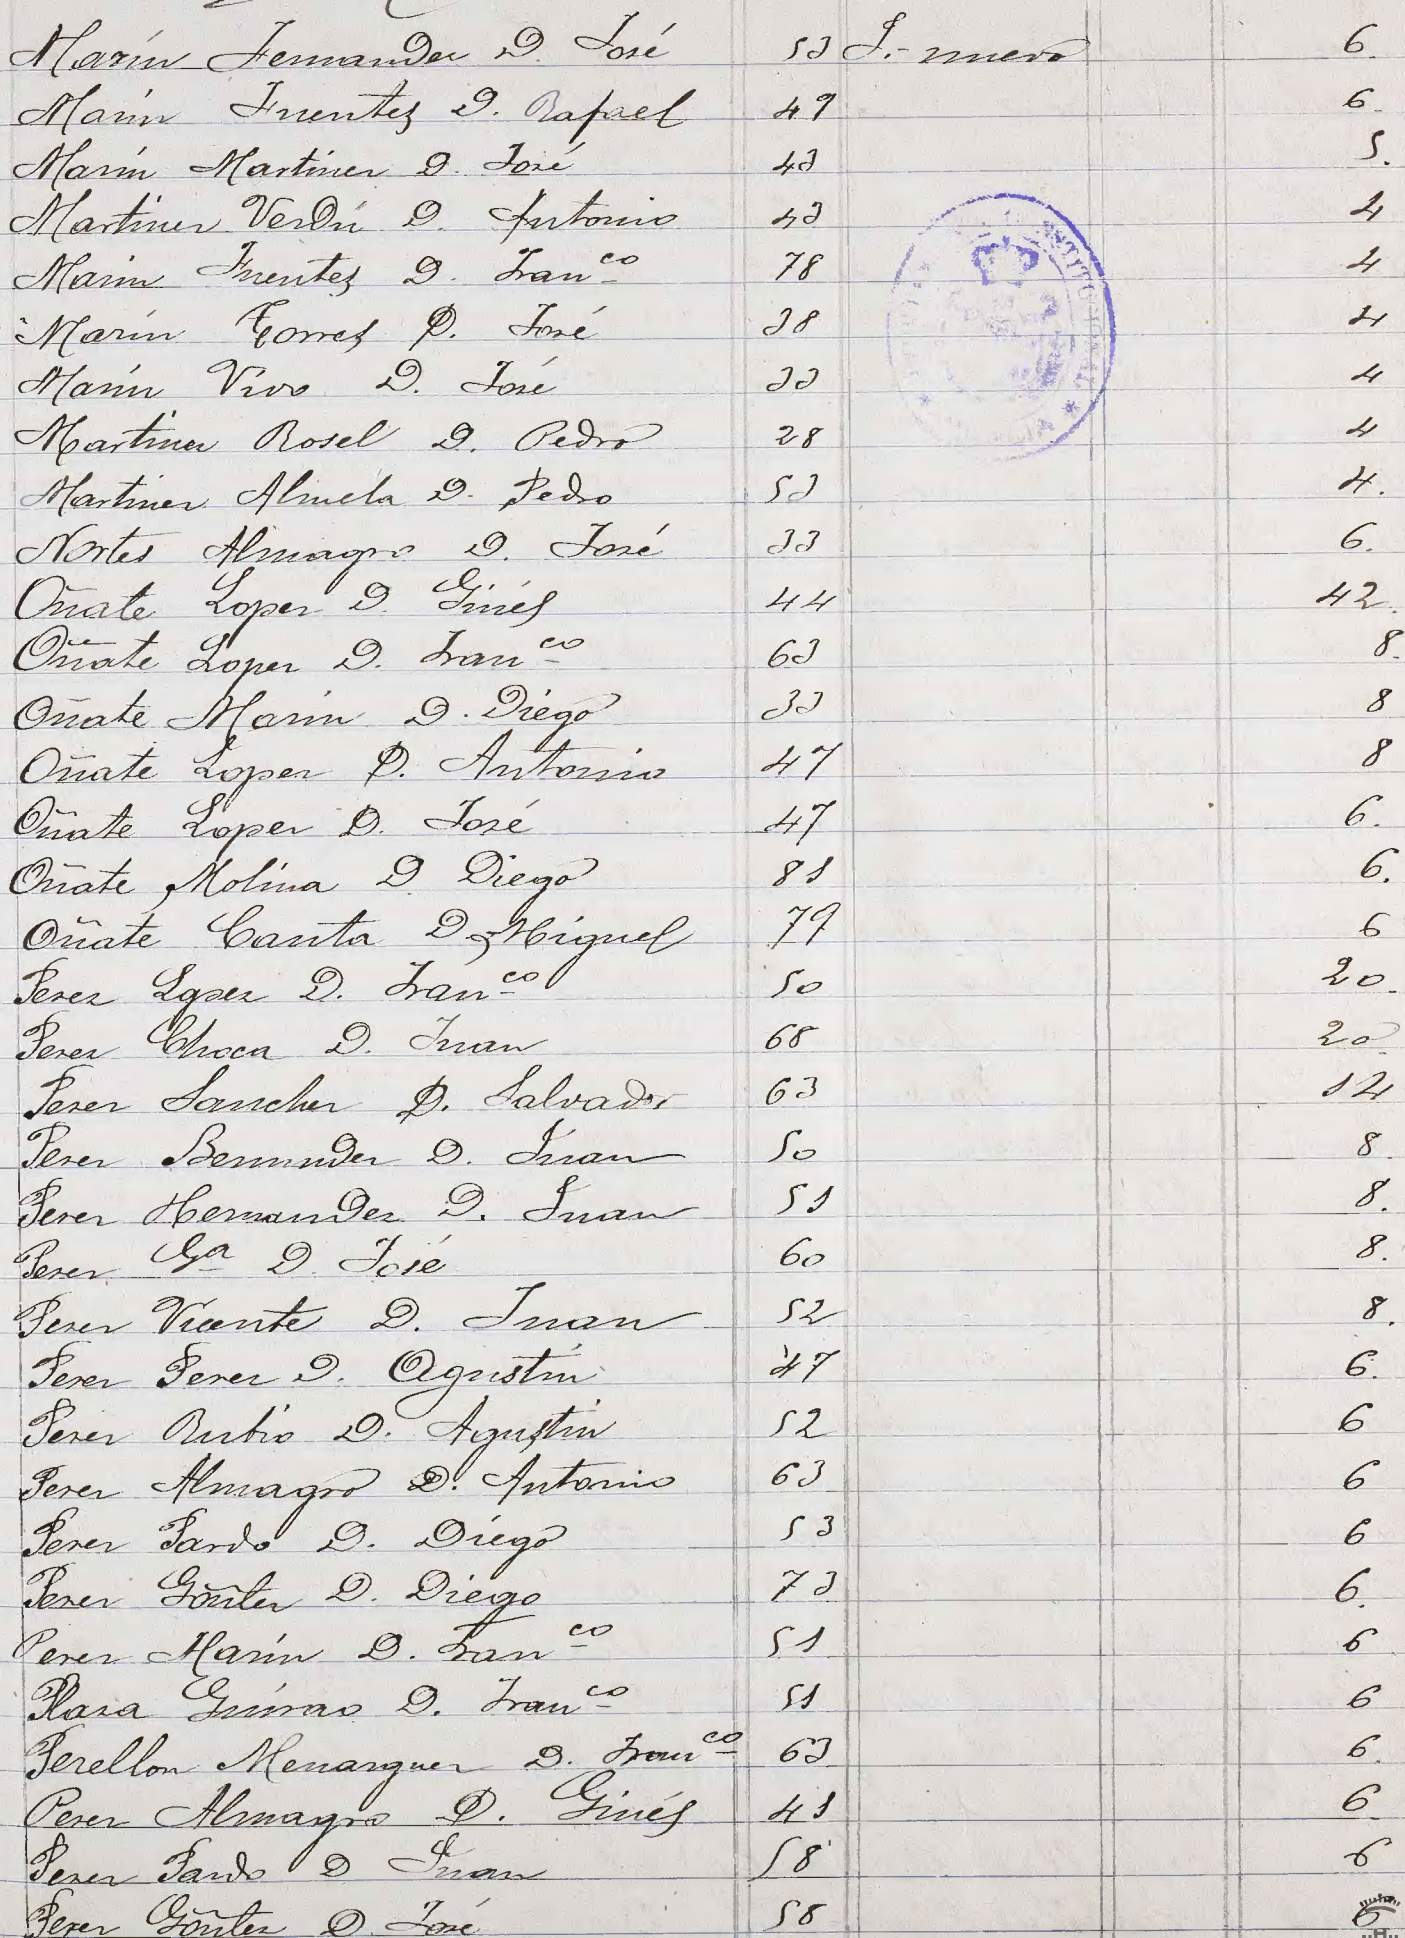 Marín Fernandez D. José 53 I.- nuevo 6.
Marin Fuentes D. Rafael 49 6.
Marin Martinez D. José 43 5.
Martinez Verdú D. Antonio 43 4
Marin Fuentes D. Franco 78 4
Marín Torres D. José 38 4
Marin Vivo D. José 33 4
Martinez Rosel D. Pedro 28 4
Martinez Almela D. Pedro 53 4.
Nortes Almagro D. José 33 6.
Oñate Lopez D. Ginés 44 42.
Oñate Lopez D. Franco 63 8.
Oñate Marin D. Diego 33 8
Oñate Lopez D. Antonio 47 8
Oñate Lopez D. José 47 6.
Oñate Molina D. Diego 81 6.
Oñate Canta D. Miguel 79 6
Perez Lopez D. Franco 50 20.
Perez Choca D. Juan 68 20
Perez Sanchez D. Salvador 63 12
Perez Bermudez D. Juan 50 8.
Perez Hernandez D. Juan 51 8.
Perez Ga D. José 60 8.
Perez Vicente D. Juan 52 8.
Perez Perez D. Agustin 47 6.
Perez Rubio D. Agustin 52 6
Perez Almagro D. Antonio 63 6
Perez Pardo D. Diego 53 6
Perez Goñtez D. Diego 73 6.
Perez Marín D. Franco 51 6
Plaza Guirao D. Franco 51 6
Perellon Menarguez D. Franco 63 6.
Perez Almagro D. Ginés 41 6.
Perez Pardo D Juan 58 6
Perez Goñtez D. José 58 6